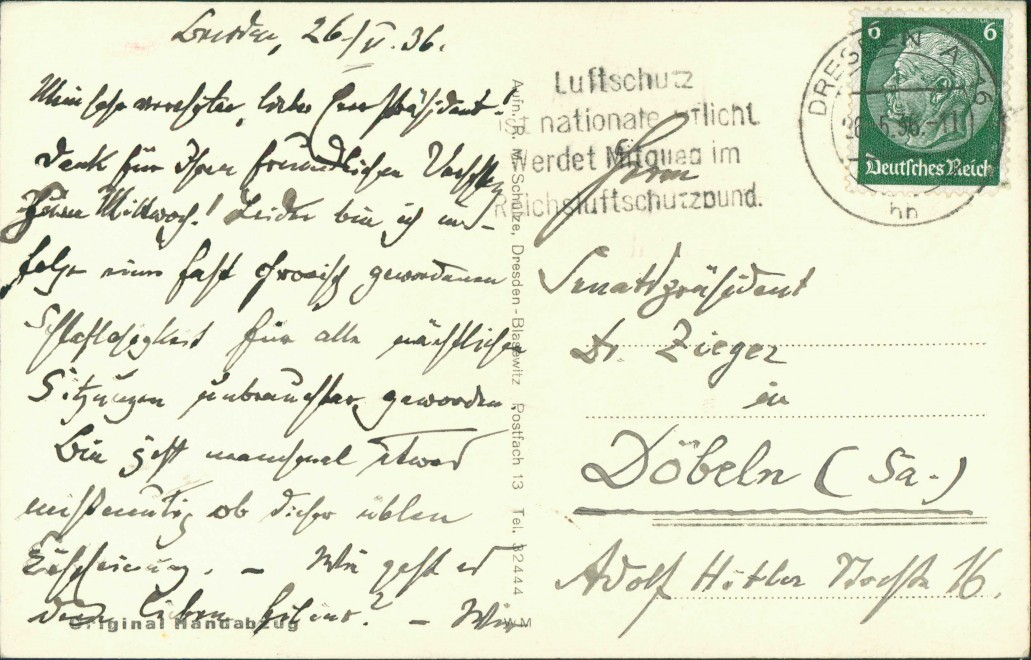 Dresden, 26./V. 36.
Mein sehr verehrter, lieber Herr Präsident!
Dank für Ihren freundlichen
Mittwoch! Leider bin ich in-
folge einer fast chronisch gewordenen
Schlaflosigkeit für alle nächtlichen
Sitzungen unbrauchbar geworden.
Bin jetzt manchmal etwas
mißmutig ob dieser üblen
Erscheinung. – Wie geht es
dem lieben ? – Wir
Original Handabzug
Aufn. R. M. Schulze, Dresden-Blasewitz Postfach 13 Tel. 32444
WM
Luftschutz
ist nationale Pflicht
Werdet Mitglied im
Reichsluftschutzbund.
DRESDEN A 16
26.5.36.-11
hh
6 6
Deutsches Reich
Herrn
Senatspräsident
Dr Zieger
in
Döbeln (Sa.)
Adolf Hitler Straße 16.